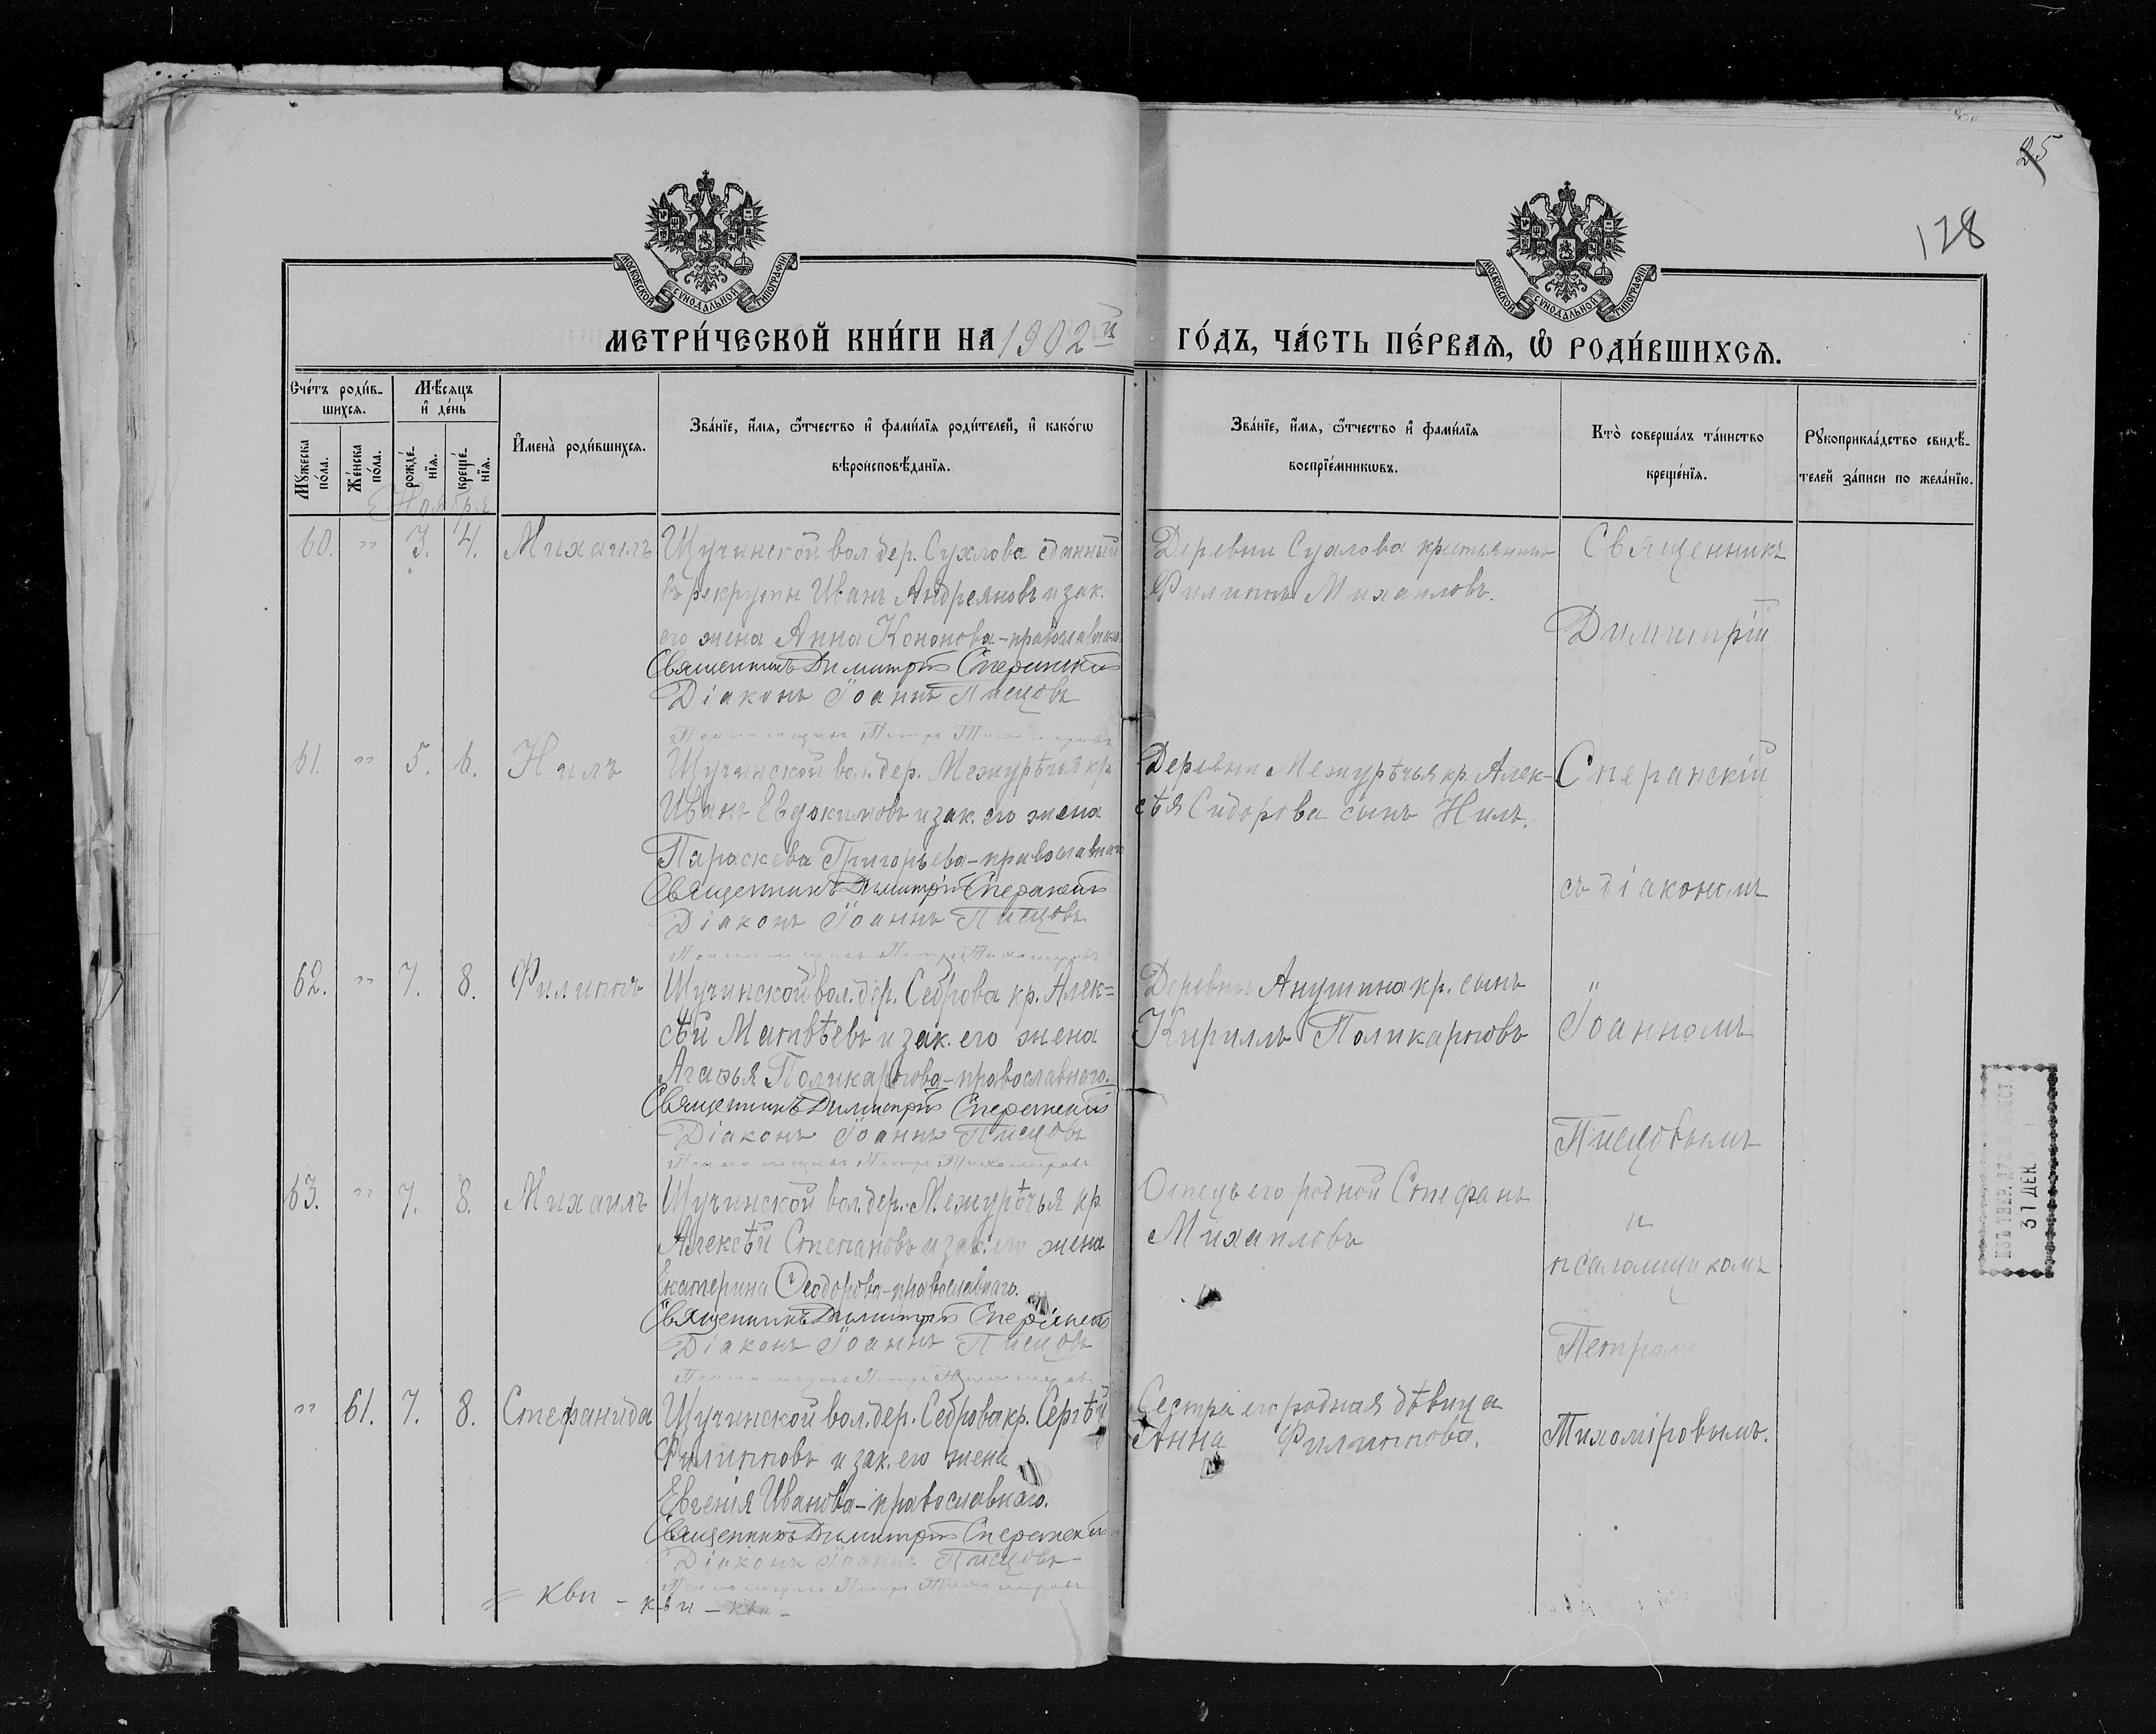 25
128
МОСКОВСКОЙ СѴНОДАЛЬНОЙ ТИПОГРАФІИ
МОСКОВСКОЙ СѴНОДАЛЬНОЙ ТИПОГРАФІИ
МЕТРИ́ЧЕСКОЙ КНИ́ГИ НА 1902й ГО́ДЪ, ЧА́СТЬ ПЕ́РВАѦ, Ѽ РОДИ́ВШИХСѦ.
Сче́тъ роди́в-
шихсѧ.
Мꙋ́жеска по́ла.
Же́нска по́ла.
Мѣ́сѧцъ
и҆ де́нь
рожде́-
нїѧ.
креще́-
нїѧ.
И҆мена̀ роди́вшихсѧ.
Зва́нїе, и҆́мѧ, ѻ҆́тчество и҆ фами́лїѧ роди́телей, и҆ како́гѡ
вѣроисповѣ́данїѧ.
Зва́нїе, и҆́мѧ, ѻ҆́тчество и҆ фами́лїѧ
воспрїе́мникѡвъ.
Кто̀ соверша́лъ та́инство
креще́нїѧ.
Рꙋкоприкла́дство свидѣ́-
телей за́писи по жела́нїю.
Ноября
60. " 3. 4. Михаилъ
Щучинской вол. дер. Сухлова сданный
въ рекруты Иванъ Андреяновъ и зак.
его жена Анна Кононова - православнаго
Священникъ Димитрій Сперанскій
Діаконъ Іоаннъ Писцовъ
Псаломщикъ Петръ Тихоміровъ
Деревни Сухлова крестьянинъ
Филиппъ Михаиловъ.
Священникъ
Димитрій
61. " 5. 6. Нилъ
Щучинской вол. дер. Межурѣчья кр.
Иванъ Евдокимовъ и зак. его жена
Параскева Григорьева - православнаго
Священникъ Димитрій Сперанскій
Діаконъ Іоаннъ Писцовъ
Псаломщикъ Петръ Тихоміровъ
Деревни Межурѣчья кр. Алек-
сѣя Сидорова сынъ Нилъ.
Сперанскій
съ діакономъ
62. " 7. 8. Филиппъ
Щучинской вол. дер.Седрова кр. Алек=
сѣй Матвѣевъ и зак. его жена
Агаѳья Поликарпова - православнаго.
Священникъ Димитрій Сперанскій
Діаконъ Іоаннъ Писцовъ
Псаломщикъ Петръ Тихоміровъ
Деревни Анушина кр. сынъ
Кириллъ Поликарповъ
Іоанномъ
Писцовымъ
63. " 7. 8. Михаилъ
Щучинской вол. дер. Межурѣчья кр.
Алексѣй Степановъ и зак. его жена
Екатерина Ѳеодорова - православнаго.
Священникъ Димитрій Сперанскій
Діаконъ Іоаннъ Писцовъ
Псаломщикъ Петръ Тихоміровъ
Отецъ его родной Стефанъ
Михаиловъ
и
псаломщикомъ
Петромъ
" 61. 7. 8. Стефанида
Щучинской вол. дер. Седрова кр. Сергѣй
Филипповъ и зак. его жена
Евгенія Иванова - православнаго.
Священникъ Димитрій Сперанскій
Діаконъ Іоаннъ Писцовъ
Псаломщикъ Петръ Тихоміровъ
Сестра его родная дѣвица
Анна Филиппова.
Тихоміровымъ.
= кви - кви - кви -
31 ДЕК.